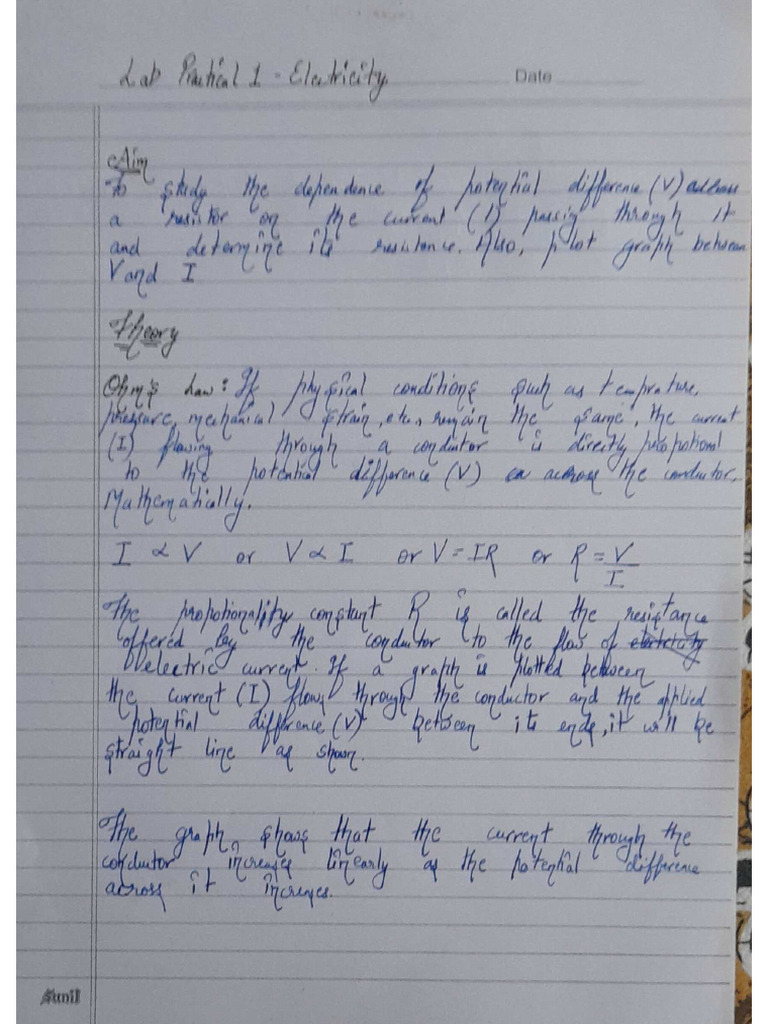 Lab Practical 1 - Electricity Date
Aim
To study the dependence of potential difference (V) across
a resistor on the current (I) passing through it
and determine its resistance. Also, plot graph between
V and I
Theory
Ohm's Law: If physical conditions such as temprature,
pressure, mechanical strain, etc., remain the same, the current
(I) flowing through a conductor is directly propotional
to the potential difference (V) across the conductor.
Mathematically.
I ∝ V or V ∝ I or V = IR or R = V/I
The propotionality constant R is called the resistance
offered by the conductor to the flow of electricity
electric current. If a graph is plotted between
the current (I) flows through the conductor and the applied
potential difference (V) between its ends, it will be
straight line as shown.
The graph shows that the current through the
conductor increases linearly as the potential difference
across it increases.
Sunil